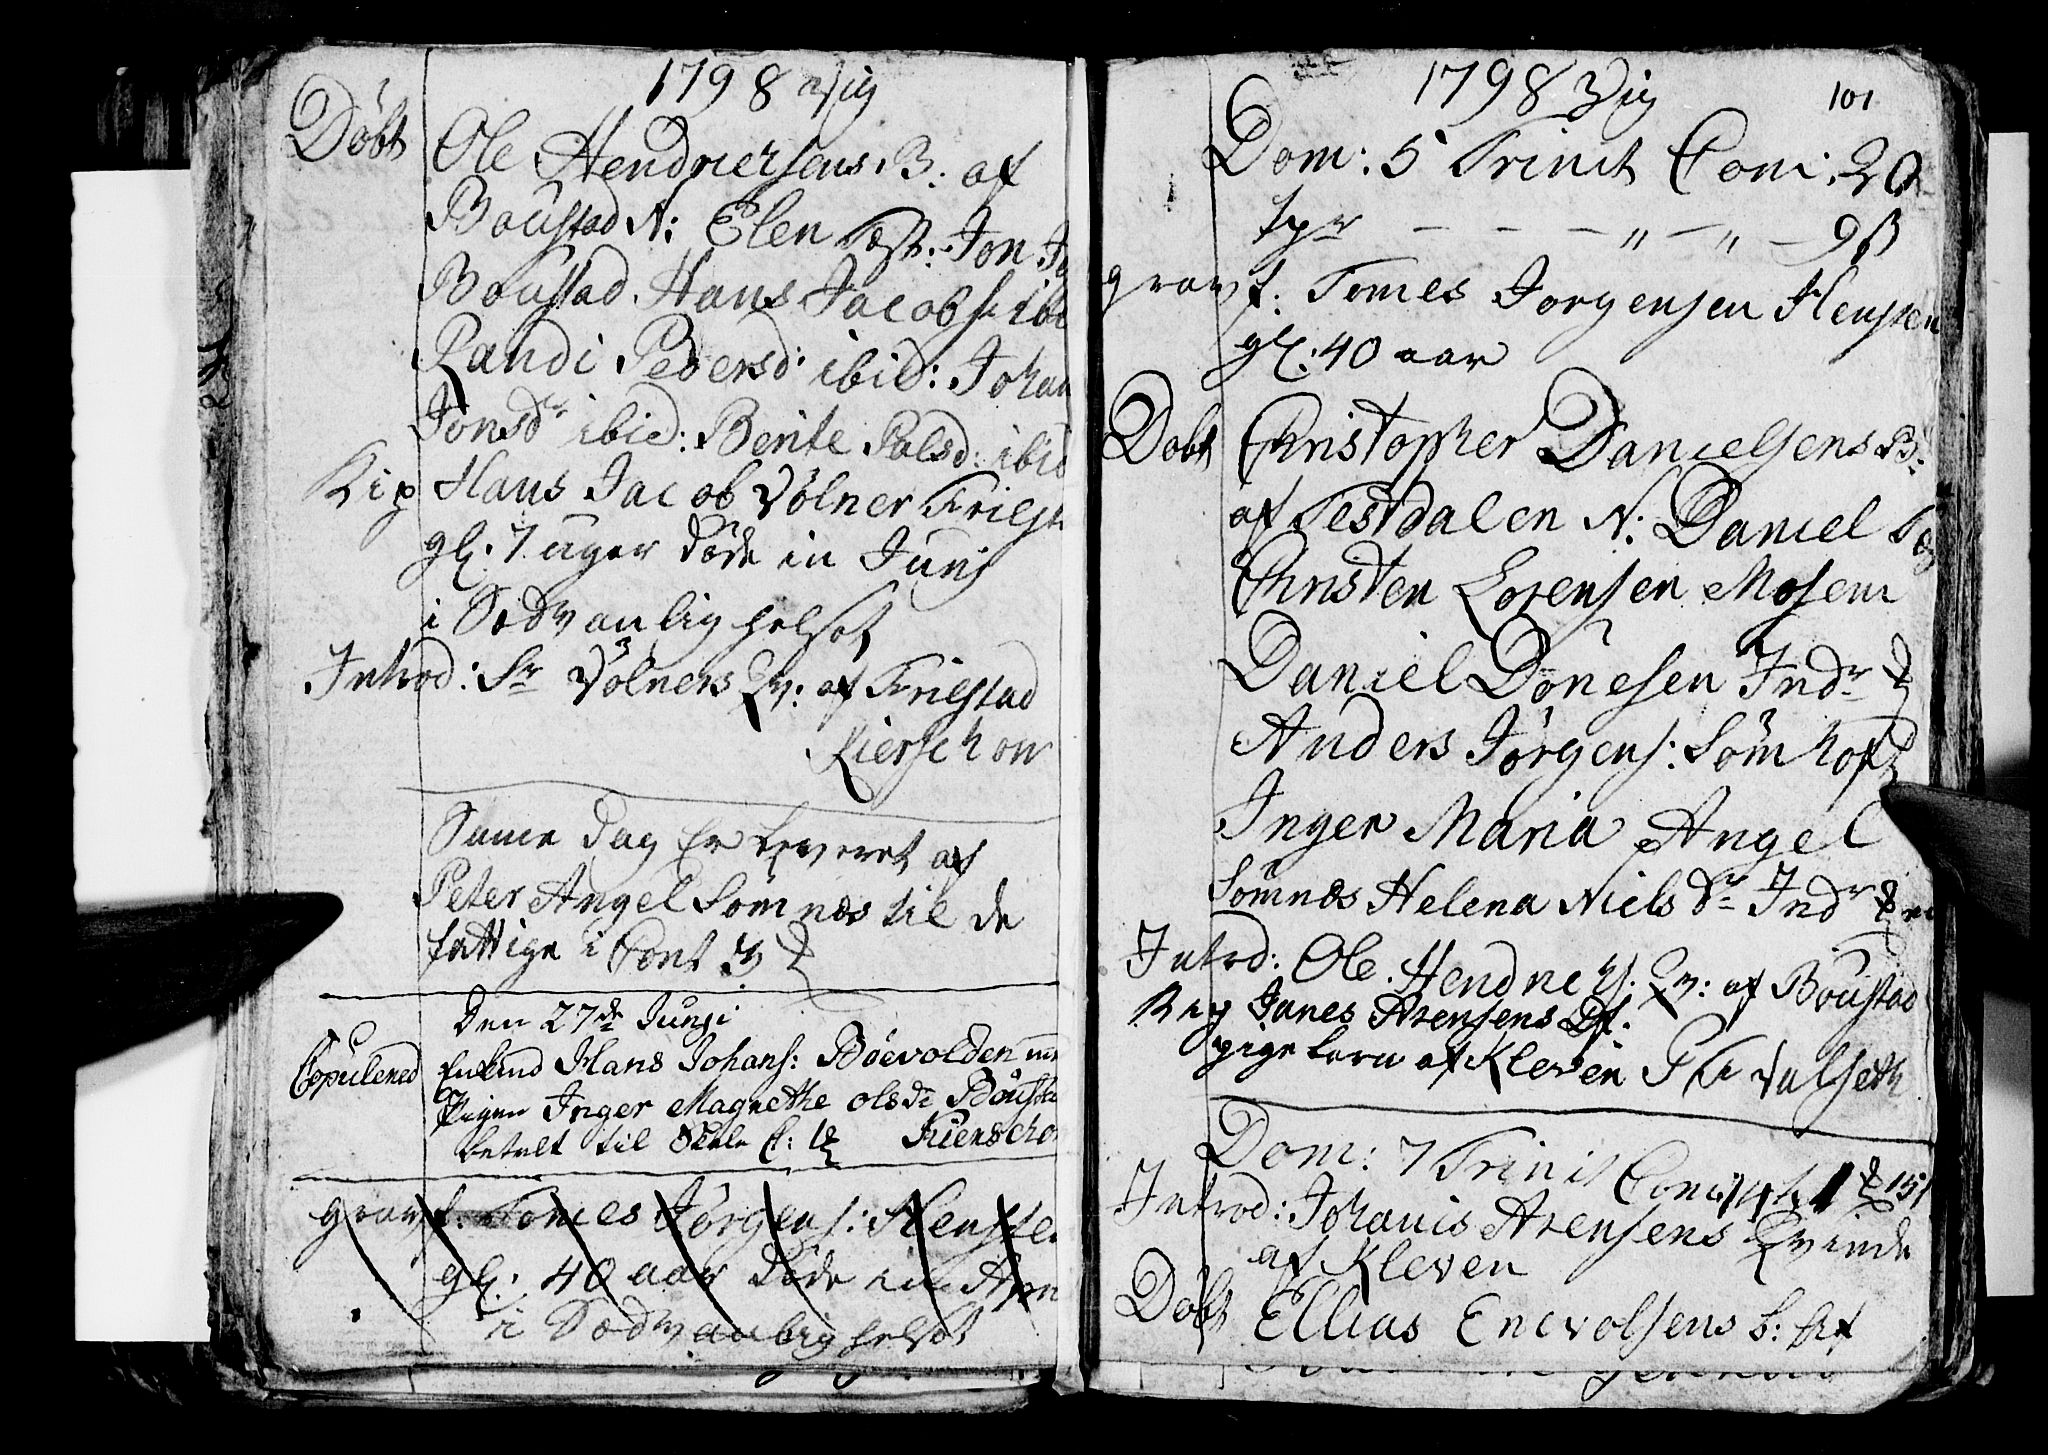 1798 Vig
Døbt Ole Hendrichsens B: af
Boustad N: Elen Test: Jon
Boustad Hans Jacobs: ibid
Randi Pedersd: ibid: Johan
Jonsdr ibid: Berite Palsd: ibid
Hans Jacob Völner Trilst
gl: 7 uger døde in Junj
i Sødvanlig helsot
Introd: Sr Völners Qv: af Trilstad
Kierschow
Same Dag Er leveret af
Peter Angel Sömnæs til de
fattige i Cont 3
Den 27de Junji
Copulered Enkmd Hans Johans: Böevolden
Pigen Inger Magrethe olsdr Boust
betalt til Skole C: Kierscho
grav f. Tomes Jörgens: Henste
gl: 40 aar Døde
i Sødvanlig helsot
1798 Vig 101
Dom: 5 Trinit Com: 20
tpr — — — " — " — 9 ß
grav f. Tomes Jorgensen Hensten
gl: 40 aar
Døbt Christopher Danielsens B:
af Testdalen N: Daniel
Christen Lorensen Mosem
Daniel Dönesen Indr
Anders Jörgens: Sömhof
Inger Maria Angel
Sömnæs Helena Niels Dr Indr
Introd: Ole Hendrichs: Qv: af Boustad
Janes Arensens Df.
pige barn af Kleven Valseth
Dom: 7 Trinit Com:
Introd: Johanis Arensens Qvinde
af Kleven
Døbt Ellias Encvolsens b: af